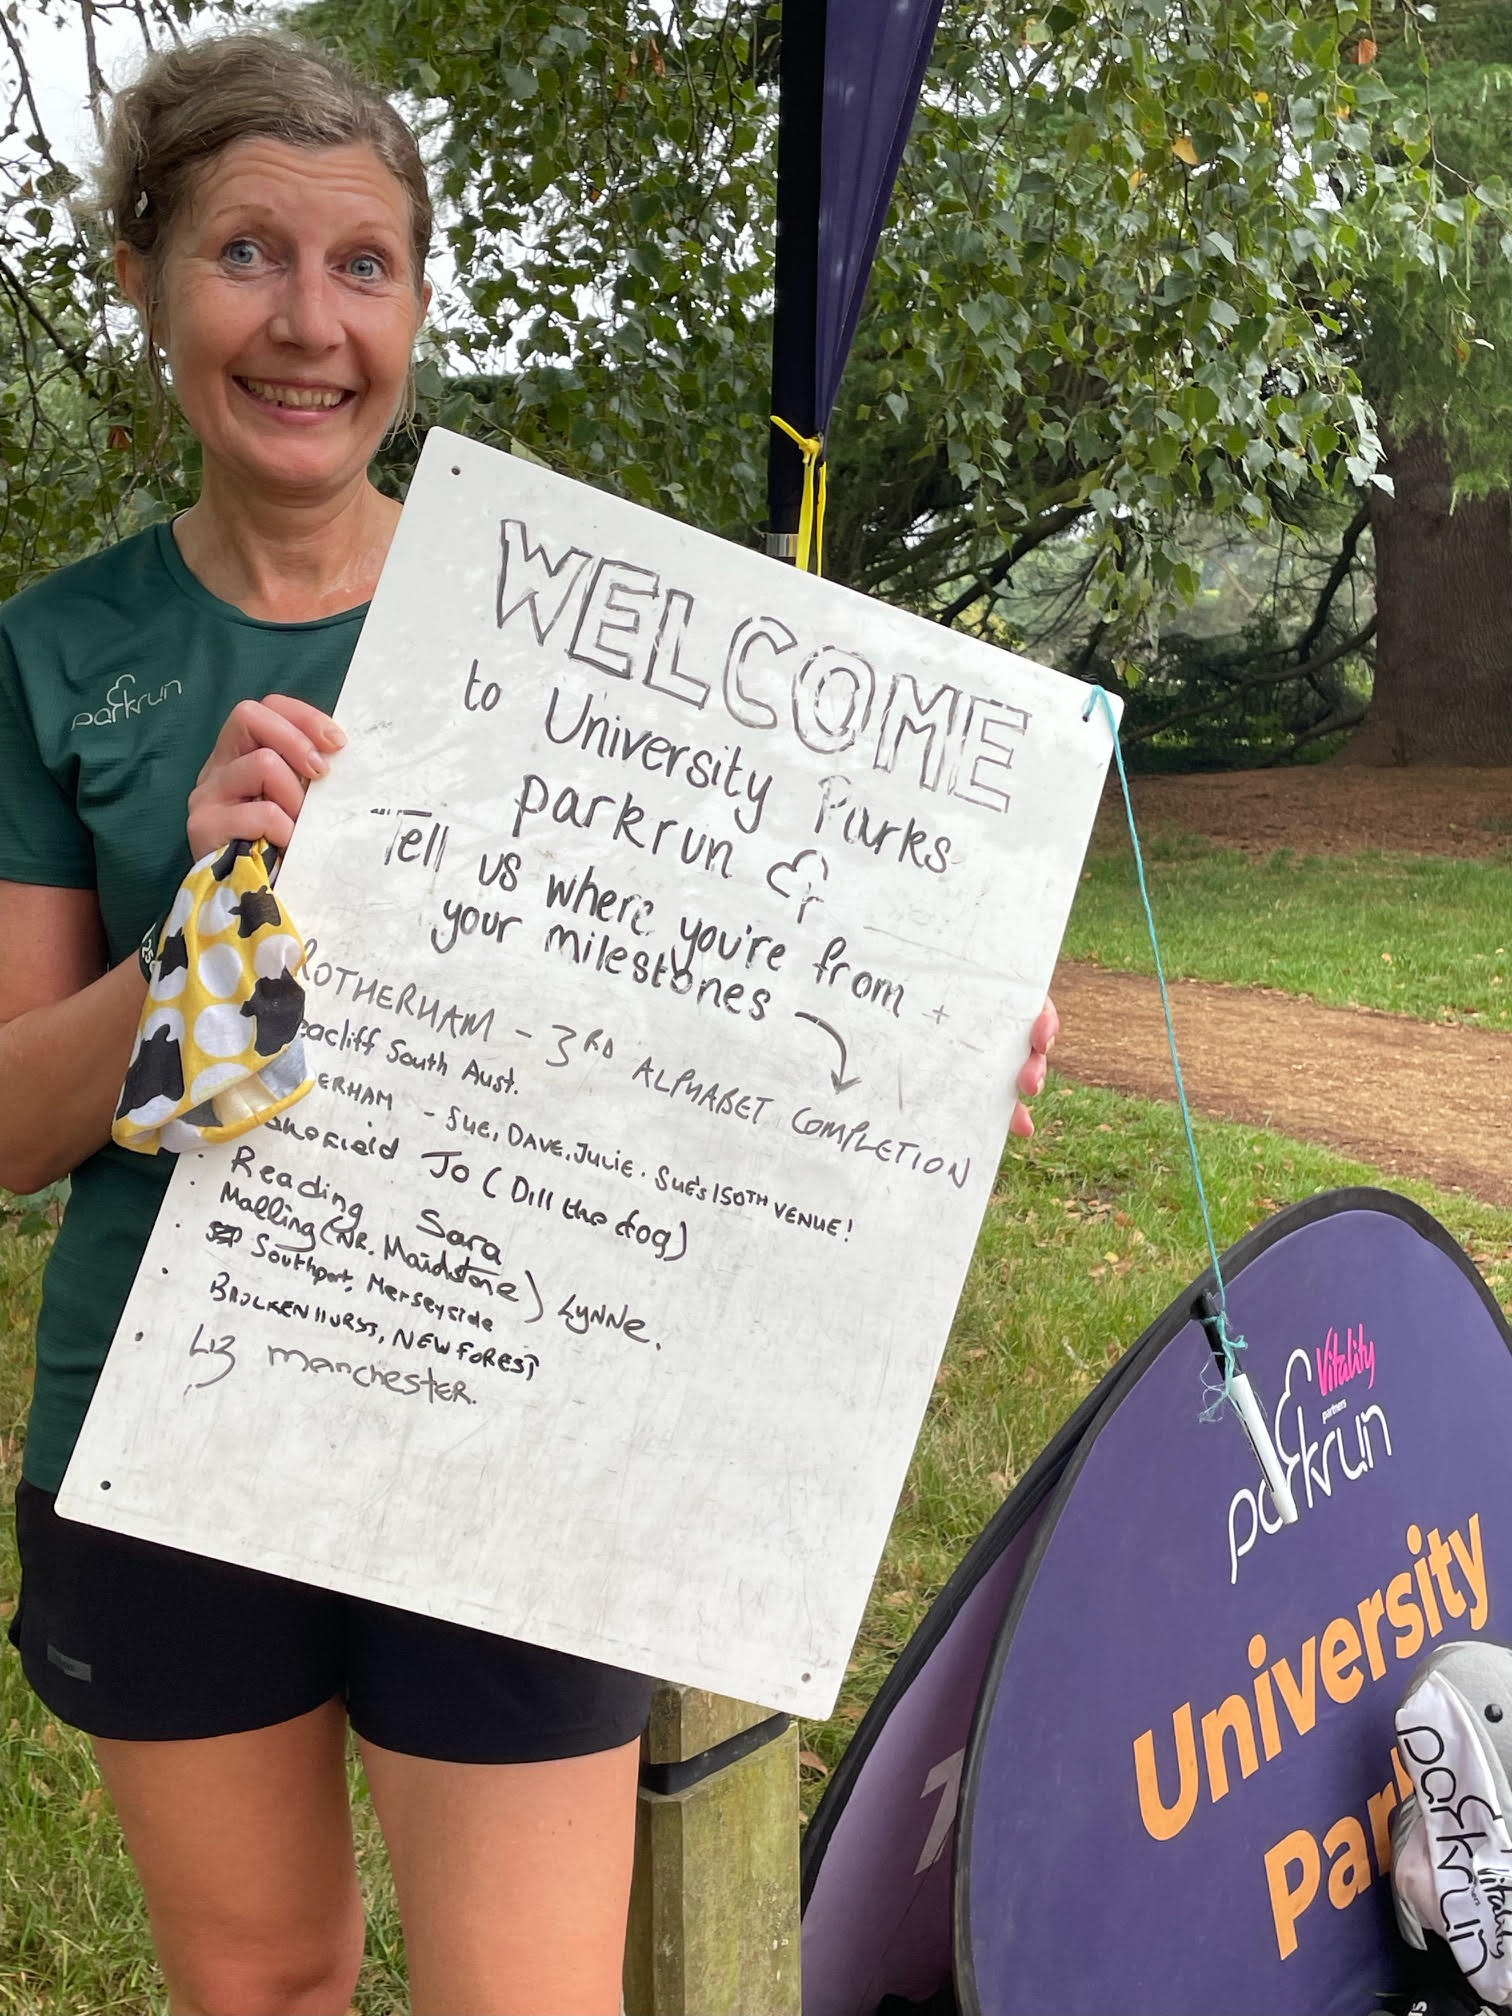 WELCOME
to University Parks
parkrun
Tell us where you're from +
your milestones
ROTHERHAM - 3RD ALPHABET COMPLETION
eacliff South Aust.
ERHAM - SUE, DAVE, JULIE. SUE'S 150TH VENUE!
Jo (Dill the dog)
Reading Sara
Malling (NR. Maidstone) LYNNe.
Southport, Merseyside
BROCKENHURST, NEW FOREST
Liz mancheSTER.
parkrun
25
Vitality
partners
parkrun
University
Par
parkrun
Vitality